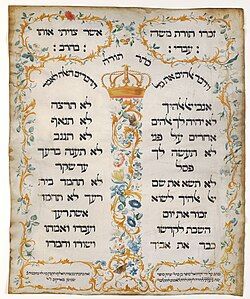 זכרו תורת משה
עבדי
אשר צויתי אותו
בחרב
כתר תורה
וידבר אלהים את כל
הדברים האלה לאמר
אנכי ה' אלהיך
לא יהיה לך אלהים
אחרים על פני
לא תעשה לך
פסל
לא תשא את שם
ה' אלהיך לשוא
זכור את יום
השבת לקדשו
כבד את אביך
לא תרצח
לא תנאף
לא תגנב
לא תענה ברעך
עד שקר
לא תחמד בית
רעך לא תחמד
אשת רעך
ועבדו ואמתו
ושורו וחמרו